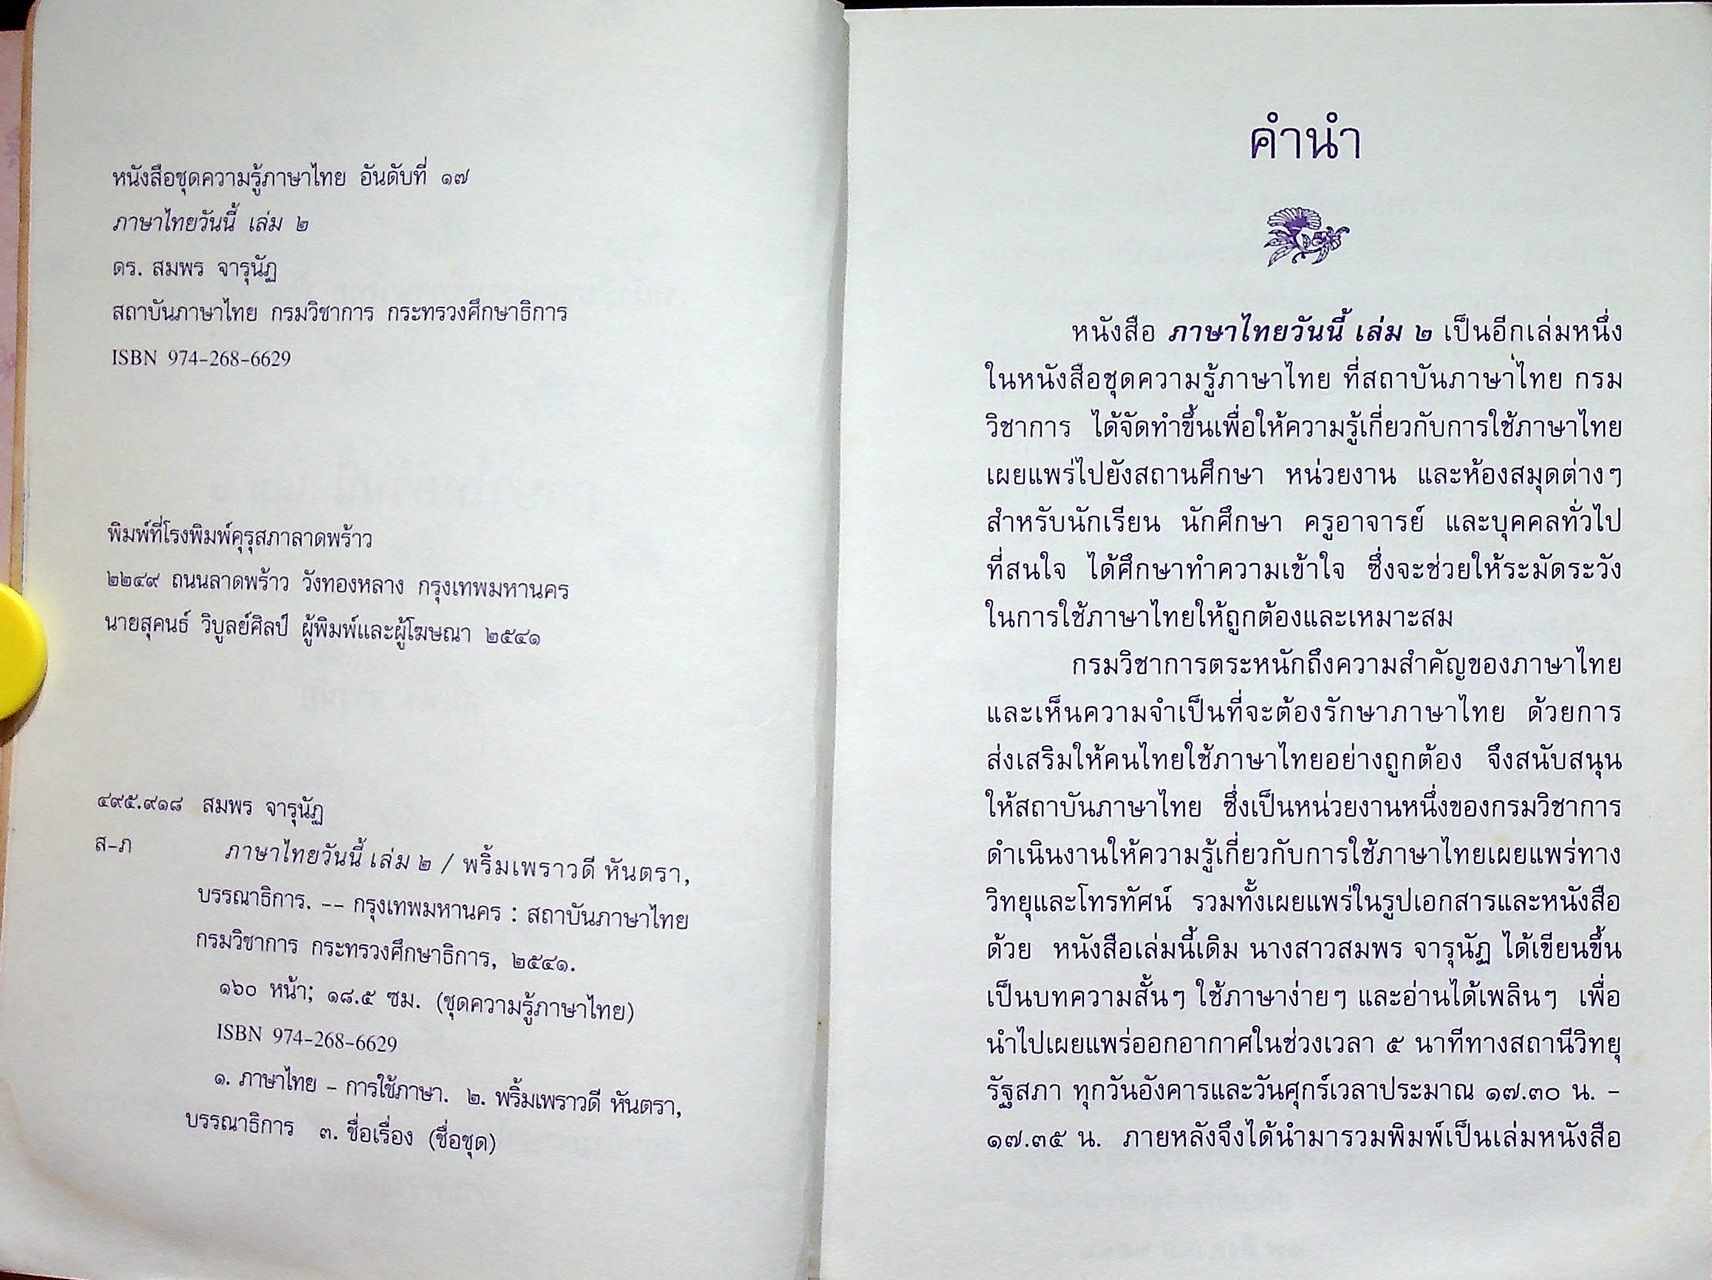 หนังสือชุดความรู้ภาษาไทย อันดับที่ ๑๗
ภาษาไทยวันนี้ เล่ม ๒
ดร. สมพร จารุนัฏ
สถาบันภาษาไทย กรมวิชาการ กระทรวงศึกษาธิการ
ISBN 974-268-6629
พิมพ์ที่โรงพิมพ์คุรุสภาลาดพร้าว
๒๒๔๙ ถนนลาดพร้าว วังทองหลาง กรุงเทพมหานคร
นายสุคนธ์ วิบูลย์ศิลป์ ผู้พิมพ์และผู้โฆษณา ๒๕๔๑
๔๙๕.๙๑๘ สมพร จารุนัฏ
ส-ภ ภาษาไทยวันนี้ เล่ม ๒ / พริ้มเพราวดี หันตรา,
บรรณาธิการ. -- กรุงเทพมหานคร : สถาบันภาษาไทย
กรมวิชาการ กระทรวงศึกษาธิการ, ๒๕๔๑.
๑๖๐ หน้า; ๑๘.๕ ซม. (ชุดความรู้ภาษาไทย)
ISBN 974-268-6629
๑. ภาษาไทย - การใช้ภาษา. ๒. พริ้มเพราวดี หันตรา,
บรรณาธิการ ๓. ชื่อเรื่อง (ชื่อชุด)
คำนำ
หนังสือ ภาษาไทยวันนี้ เล่ม ๒ เป็นอีกเล่มหนึ่ง
ในหนังสือชุดความรู้ภาษาไทย ที่สถาบันภาษาไทย กรม
วิชาการ ได้จัดทำขึ้นเพื่อให้ความรู้เกี่ยวกับการใช้ภาษาไทย
เผยแพร่ไปยังสถานศึกษา หน่วยงาน และห้องสมุดต่างๆ
สำหรับนักเรียน นักศึกษา ครูอาจารย์ และบุคคลทั่วไป
ที่สนใจ ได้ศึกษาทำความเข้าใจ ซึ่งจะช่วยให้ระมัดระวัง
ในการใช้ภาษาไทยให้ถูกต้องและเหมาะสม
กรมวิชาการตระหนักถึงความสำคัญของภาษาไทย
และเห็นความจำเป็นที่จะต้องรักษาภาษาไทย ด้วยการ
ส่งเสริมให้คนไทยใช้ภาษาไทยอย่างถูกต้อง จึงสนับสนุน
ให้สถาบันภาษาไทย ซึ่งเป็นหน่วยงานหนึ่งของกรมวิชาการ
ดำเนินงานให้ความรู้เกี่ยวกับการใช้ภาษาไทยเผยแพร่ทาง
วิทยุและโทรทัศน์ รวมทั้งเผยแพร่ในรูปเอกสารและหนังสือ
ด้วย หนังสือเล่มนี้เดิม นางสาวสมพร จารุนัฏ ได้เขียนขึ้น
เป็นบทความสั้นๆ ใช้ภาษาง่ายๆ และอ่านได้เพลินๆ เพื่อ
นำไปเผยแพร่ออกอากาศในช่วงเวลา ๕ นาทีทางสถานีวิทยุ
รัฐสภา ทุกวันอังคารและวันศุกร์เวลาประมาณ ๑๗.๓๐ น. -
๑๗.๓๕ น. ภายหลังจึงได้นำมารวมพิมพ์เป็นเล่มหนังสือ